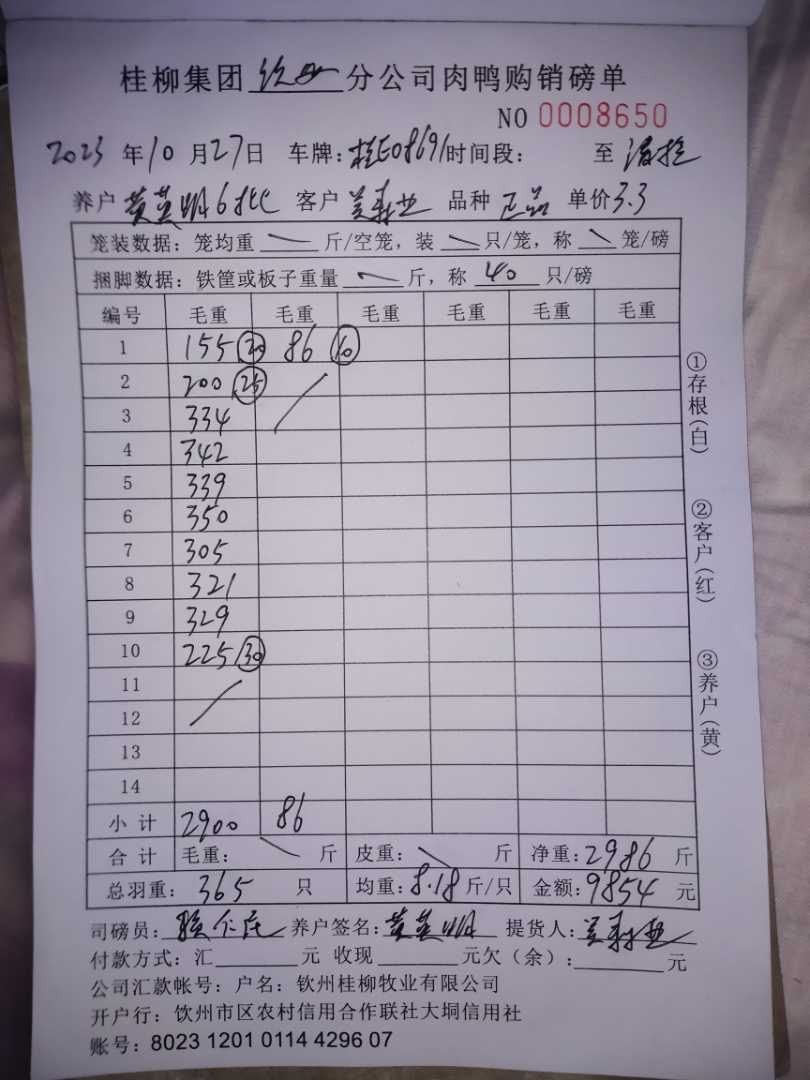 桂柳集团 钦州 分公司肉鸭购销磅单
NO 0008650
2023 年 10 月 27 日 车牌: 桂E08691 时间段: 至
养户 黄英明6批 客户 品种 正品 单价 3.3
笼装数据: 笼均重 斤/空笼, 装 只/笼, 称 笼/磅
捆脚数据: 铁筐或板子重量 斤, 称 40 只/磅
编号 毛重 毛重 毛重 毛重 毛重 毛重
1 155 20 86 10
2 200 25
3 334
4 342
5 339
6 350
7 305
8 321
9 329
10 225 30
11
12
13
14
小计 2900 86
合计 毛重: 斤 皮重: 斤 净重: 2986 斤
总羽重: 365 只 均重: 8.18 斤/只 金额: 9854 元
司磅员: 养户签名: 黄英明 提货人:
付款方式: 汇 元 收现 元欠(余): 元
公司汇款帐号: 户名: 钦州桂柳牧业有限公司
开户行: 钦州市区农村信用合作联社大垌信用社
账号: 8023 1201 0114 4296 07
①存根(白)
②客户(红)
③养户(黄)